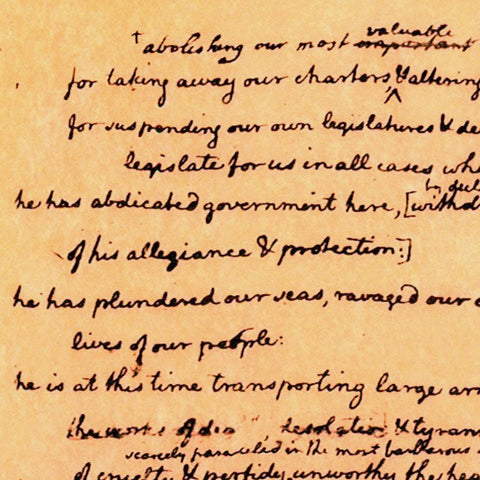 valuable
† abolishing our most important
for taking away our charters, & altering
for suspending our own legislatures & de
legislate for us in all cases wh
by decl
he has abdicated government here, [withd
of his allegiance & protection:]
he has plundered our seas, ravaged our c
lives of our people:
he is at this time transporting large arm
the works of dea desolation & tyran
scarcely paralleled in the most barbarous a
of cruelty & perfidy unworthy the hea